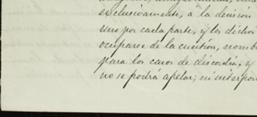 exclusivamente, á la decision
uno por cada parte, y los dichos
ocuparse de la cuestion, nombr
para los casos de discordia, y
no se podrá apelar; ni interpon